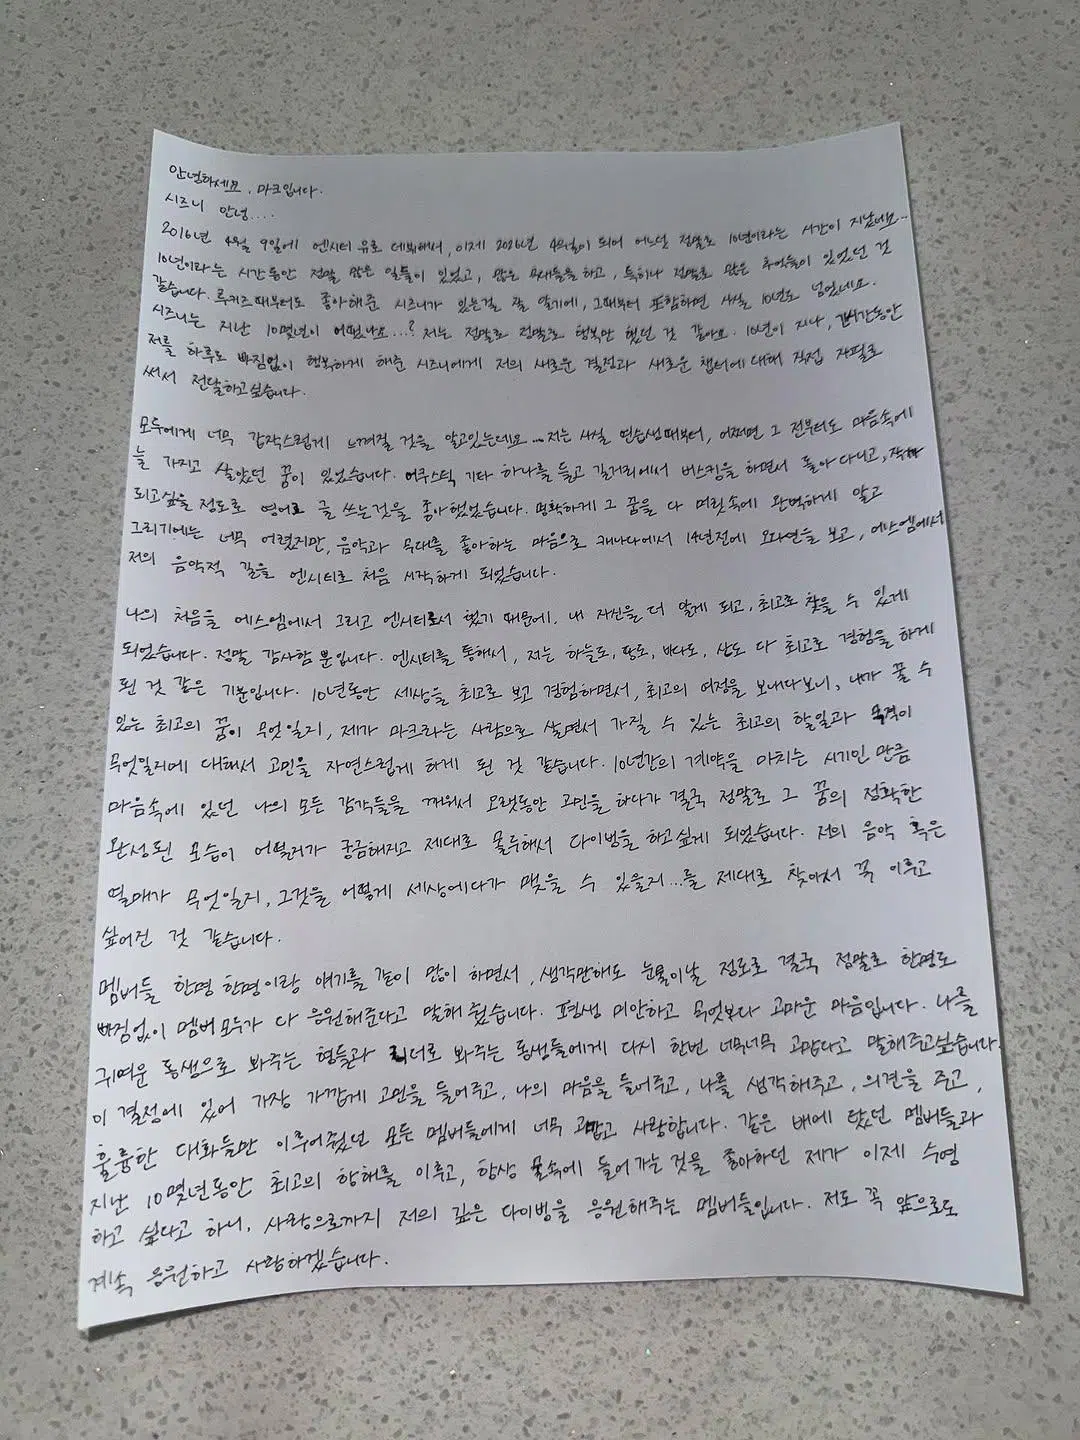 안녕하세요, 마크입니다.
시즈니 안녕....
2016년 4월 9일에 엔시티 유로 데뷔해서, 이제 2026년 4월이 되어 어느새 정말로 10년이라는 시간이 지났네요..
10년이라는 시간동안 정말 많은 일들이 있었고, 많은 무대들을 하고, 특히나 정말로 많은 추억들이 있었던 것
같습니다. 루키즈때부터도 좋아해준 시즈니가 있는걸 잘 알기에, 그때부터 포함하면 사실 10년도 넘었네요.
시즈니는 지난 10몇년이 어땠나요...? 저는 정말로 정말로 행복만 했던 것 같아요. 10년이 지나, 긴시간동안
저를 하루도 빠짐없이 행복하게 해준 시즈니에게 저의 새로운 결정과 새로운 챕터에 대해 직접 자필로
써서 전달하고싶습니다.
모두에게 너무 갑작스럽게 느껴질 것을 알고있는데요...저는 사실 연습생때부터, 어쩌면 그 전부터도 마음속에
늘 가지고 살았던 꿈이 있었습니다. 어쿠스틱 기타 하나를 들고 길거리에서 버스킹을 하면서 돌아다니고, 작가
되고싶을 정도로 영어로 글 쓰는것을 좋아했었습니다. 명확하게 그 꿈을 다 머릿속에 완벽하게 알고
그리기에는 너무 어렸지만, 음악과 무대를 좋아하는 마음으로 캐나다에서 14년전에 오디션을 보고, 에스엠에서
저의 음악적 길을 엔시티로 처음 시작하게 되었습니다.
나의 처음을 에스엠에서 그리고 엔시티로서 했기 때문에, 내 자신을 더 알게 되고, 최고로 찾을 수 있게
되었습니다. 정말 감사할 뿐입니다. 엔시티를 통해서, 저는 하늘도, 땅도, 바다도, 산도 다 최고로 경험을 하게
된 것 같은 기분입니다. 10년동안 세상을 최고로 보고 경험하면서, 최고의 여정을 보내다보니, 내가 꿀 수
있는 최고의 꿈이 무엇일지, 제가 마크라는 사람으로 살면서 가질 수 있는 최고의 할일과 목적이
무엇일지에 대해서 고민을 자연스럽게 하게 된 것 같습니다. 10년간의 계약을 마치는 시기인 만큼
마음속에 있던 나의 모든 감각들을 깨워서 오랫동안 고민을 하다가 결국 정말로 그 꿈의 정확한
완성된 모습이 어떨지가 궁금해지고 제대로 몰두해서 다이빙을 하고싶게 되었습니다. 저의 음악 혹은
열매가 무엇일지, 그것을 어떻게 세상에다가 맺을 수 있을지...를 제대로 찾아서 꼭 이루고
싶어진 것 같습니다.
멤버들 한명 한명이랑 얘기를 같이 많이 하면서, 생각만해도 눈물이날 정도로 결국 정말로 한명도
빠짐없이 멤버모두가 다 응원해준다고 말해 줬습니다. 평생 미안하고 무엇보다 고마운 마음입니다. 나를
귀여운 동생으로 봐주는 형들과 리더로 봐주는 동생들에게 다시 한번 너무너무 고맙다고 말해주고싶습니다.
이 결정에 있어 가장 가깝게 고민을 들어주고, 나의 마음을 들어주고, 나를 생각해주고, 의견을 주고,
훌륭한 대화들만 이루어줬던 모든 멤버들에게 너무 고맙고 사랑합니다. 같은 배에 탔던 멤버들과
지난 10몇년동안 최고의 항해를 이루고, 항상 물속에 들어가는것을 좋아하던 제가 이제 수영
하고 싶다고 하니, 사랑으로까지 저의 깊은 다이빙을 응원해주는 멤버들입니다. 저도 꼭 앞으로도
계속 응원하고 사랑하겠습니다.